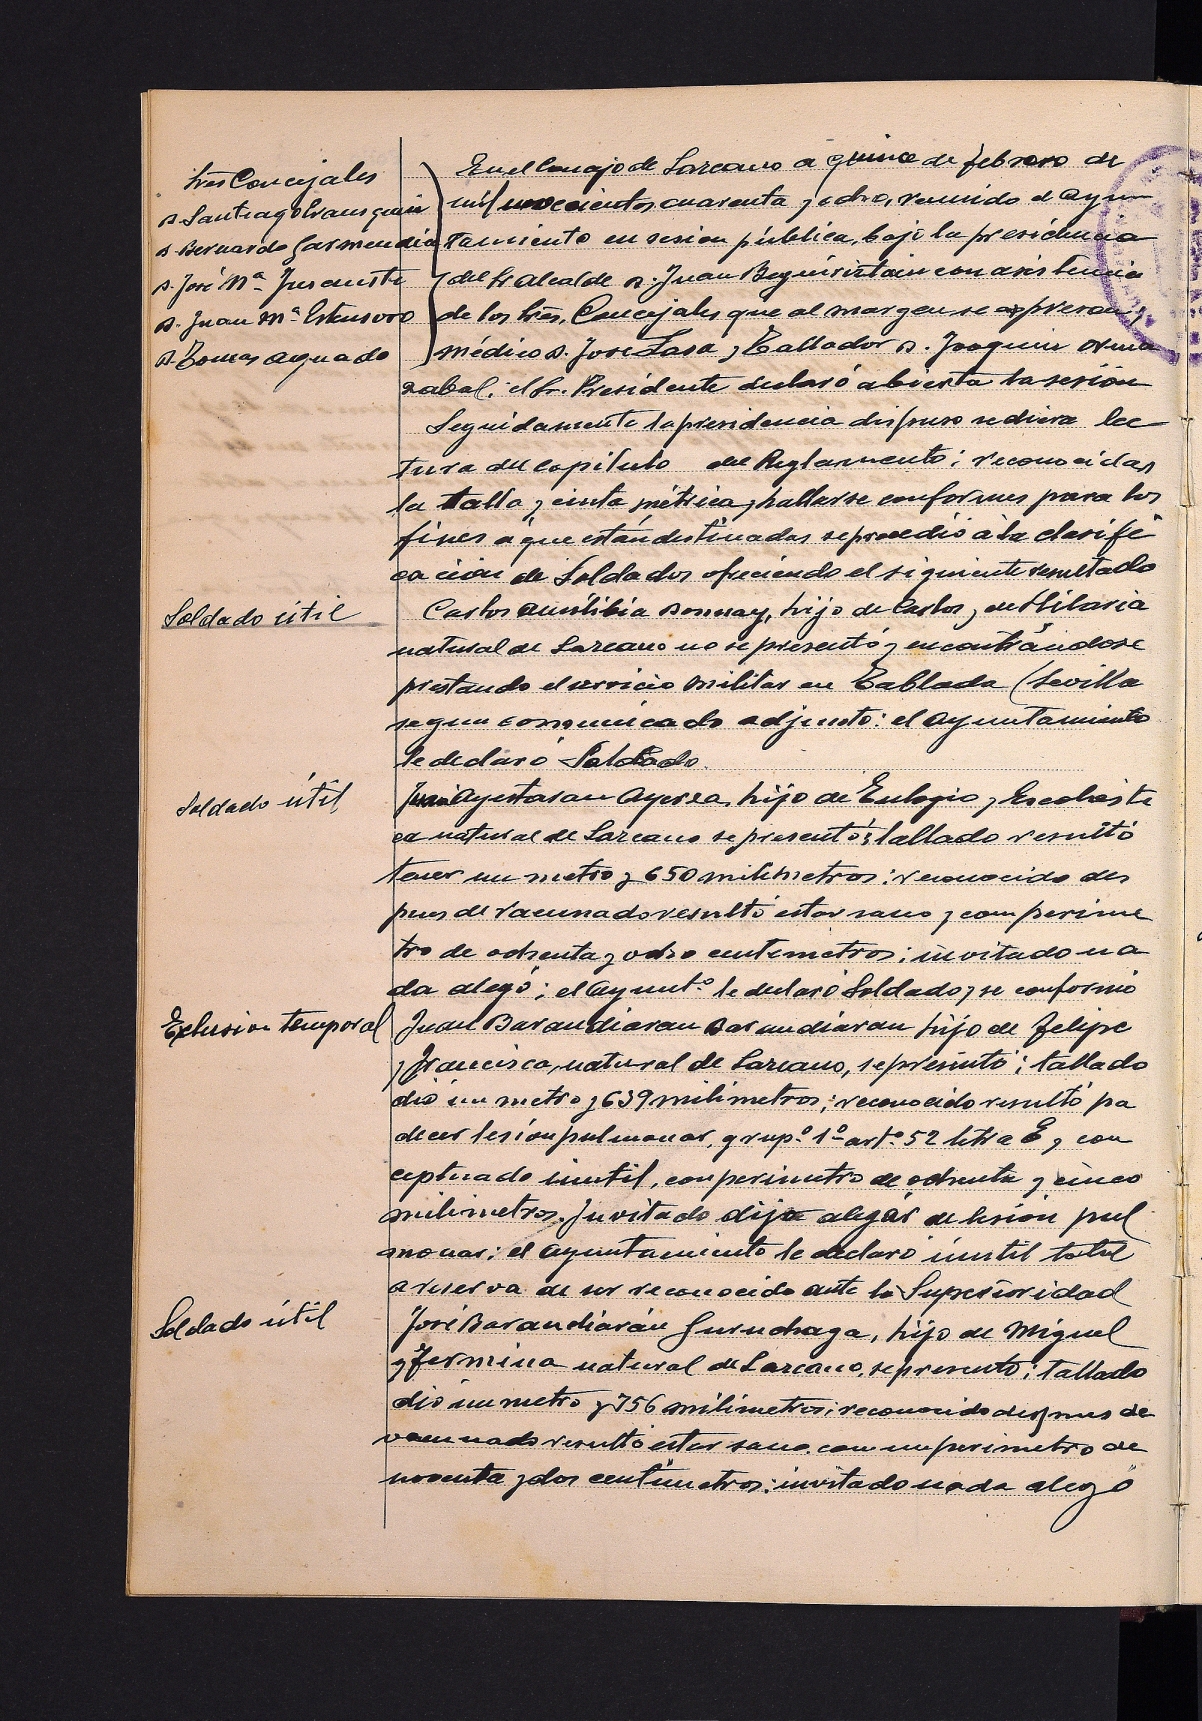 Sres Concejales
D. Santiago Aramguren
D. Bernardo Garmendia
D. José Mª Insausti
D. Juan Mª Estensoro
D. Tomas Aguado
En el Concejo de Lazcano a quince de febrero de
mil novecientos cuarenta y ocho, reunido el Ayun
tamiento en sesion pública, bajo la presidencia
del Sr Alcalde D. Juan Beguiristain con asistencia
de los Sres. Concejales que al margen se expresan,
médico D. Jose Lasa y Tallador D. Joaquin Orma
zabal, el Sr. Presidente declaró abierta la sesión
Seguidamente la presidencia dispuso se diera lec
tura del capitulo del Reglamento; reconocidas
la talla y cinta métrica y hallarse conformes para los
fines a que están destinadas se procedió a la clasifi
cación de Soldados ofreciendo el siguiente resultado
Soldado útil
Carlos Aunlibia hijo de Carlos y de Hilaria
natural de Lazcano no se presentó y encontrándose
prestando el servicio militar en Tablada (Sevilla
segun comunicado adjunto: el Ayuntamiento
le declaró Soldado.
Soldado útil
Ayestaran Ayerza, hijo de Eulogio y Escolásti
ca natural de Lazcano se presentó; tallado resultó
tener un metro y 650 milimetros: reconocido des
pues de vacunado resultó estar sano y con perime
tro de ochenta y ocho centimetros; invitado na
da alegó; el Ayuntº le declaró Soldado y se conformó
Exclusion temporal
Juan Barandiaran Barandiaran hijo de Felipe
y Francisca, natural de Lazcano, se presentó; tallado
dió un metro y 639 milimetros; reconocido resultó pa
decer lesión pulmonar, grupº 1º artº 52 letra E y con
ceptuado inutil, con perimetro de ochenta y cinco
milimetros. Invitado dijo alegar de lesión pul
monar; el Ayuntamiento le declaró inutil total
a reserva de ser reconocido ante la Superioridad
Soldado útil
José Barandiarán Guruchaga, hijo de Miguel
y Fermina natural de Lazcano, se presentó; tallado
dió un metro y 756 milimetros; reconocido despues de
vacunado resultó estar sano con un perimetro de
noventa y dos centimetros: invitado nada alegó